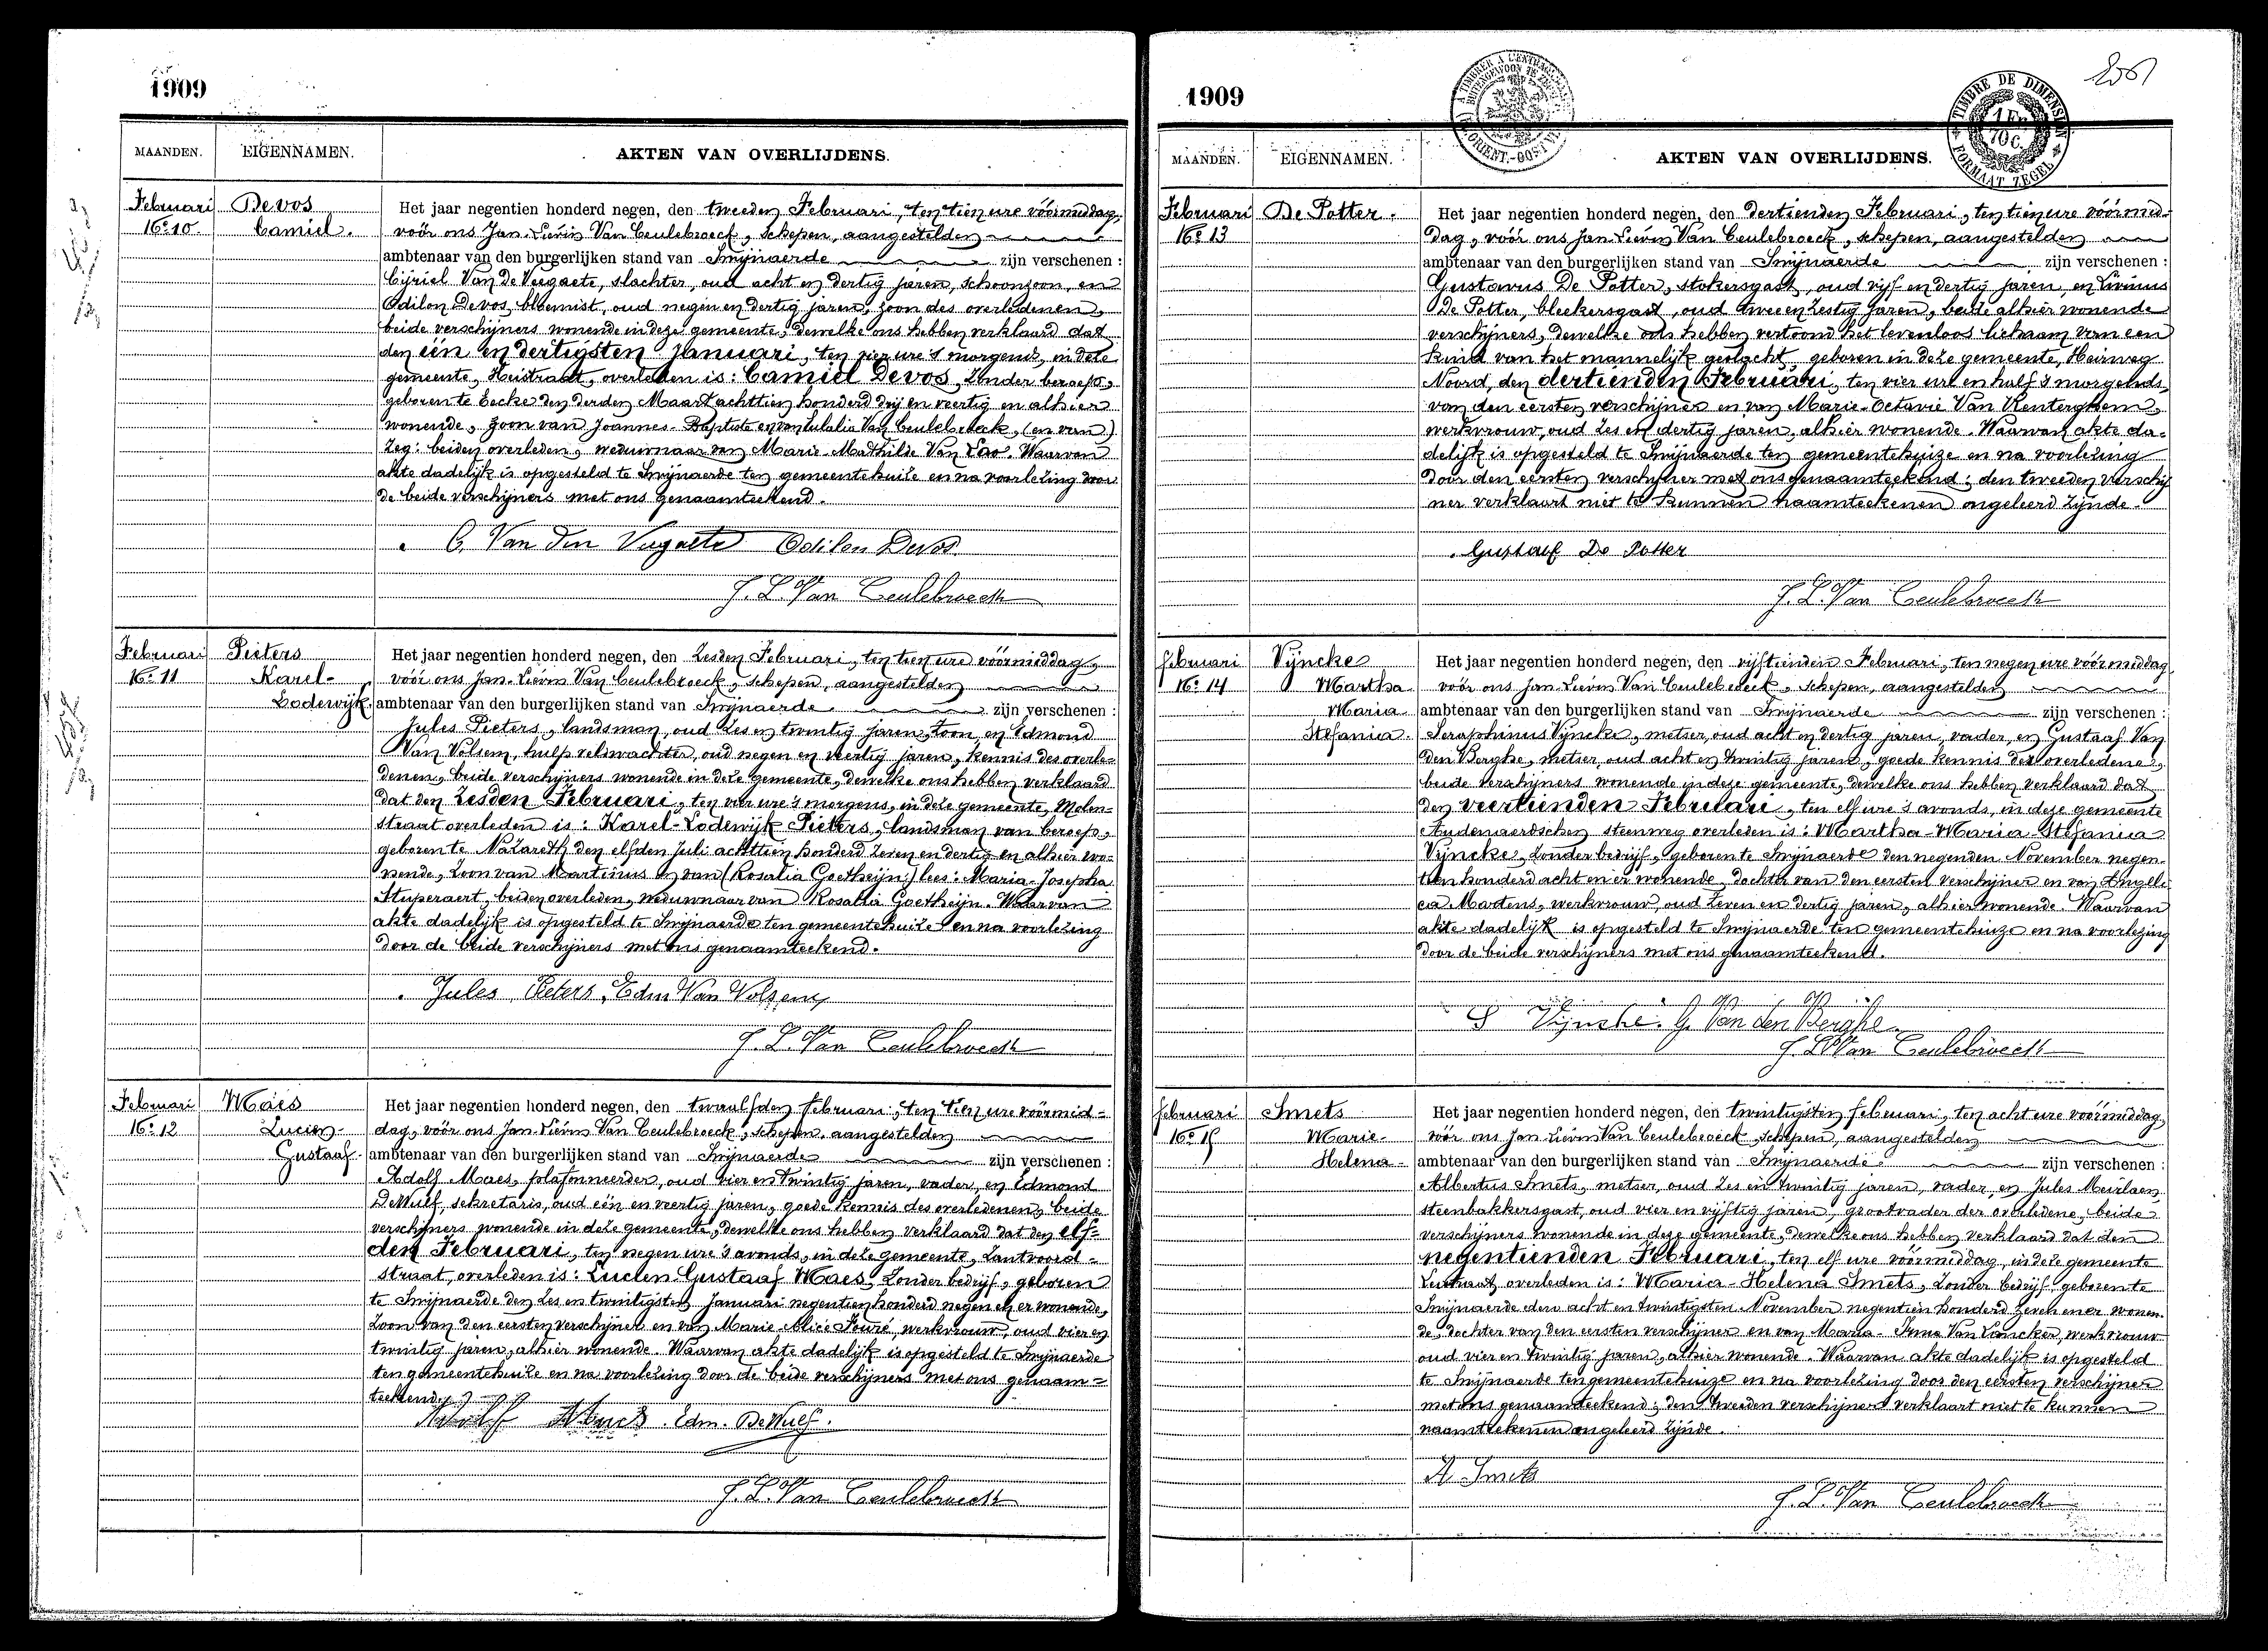 1909
MAANDEN. EIGENNAMEN. AKTEN VAN OVERLIJDENS.
Februari Devos Het jaar negentien honderd negen, den tweeden Februari, ten tien ure vóórmiddag,
No. 10. Camiel. voór ons Jan-Lievin Van Ceulebroeck, schepen, aangestelden
ambtenaar van den burgerlijken stand van Swijnaerde zijn verschenen :
Cijriel Van de Veegaete, slachter, oud acht en dertig jaren, schoonzoon, en
Odilon Devos, bloemist, oud negen en dertig jaren, zoon des overledenen,
beide verschijners wonende in deze gemeente, dewelke ons hebben verklaard dat
den één en dertigsten Januari, ten vier ure 's morgends, in deze
gemeente, Heistraat, overleden is : Camiel Devos, zonder beroep,
geboren te Eecke den derden Maart achttien honderd drij en veertig en alhier
wonende, zoon van Joannes-Baptiste en van Eulalia Van Ceulebroeck, (en van)
zeg : beiden overleden, weduwnaar van Marie-Mathilde Van Loo. Waarvan
akte dadelijk is opgesteld te Swijnaerde ten gemeentehuize en na voorlezing door
de beide verschijners met ons genaamteekend.
C. Van den Vegaete Odilon Devos
J. L. Van Ceulebroeck
Februari Pieters Het jaar negentien honderd negen, den zesden Februari, ten tien ure vóórmiddag,
No. 11 Karel- voór ons Jan-Lievin Van Ceulebroeck, schepen, aangestelden
Lodewijk. ambtenaar van den burgerlijken stand van Swijnaerde zijn verschenen :
Jules Pieters, landsman, oud zes en twintig jaren, zoon, en Edmond
Van Volsem, hulpveldwachter, oud negen en veertig jaren, kennis des overle-
denen, beide verschijners wonende in deze gemeente, dewelke ons hebben verklaard
dat den zesden Februari, ten vier ure 's morgens, in deze gemeente, Molen-
straat overleden is : Karel-Lodewijk Pieters, landsman van beroep,
geboren te Nazareth den elfden Juli achttien honderd zeven en dertig en alhier wo-
nende, zoon van Martinus en van (Rosalia Goetheijn) lees : Maria-Josepha
Stuperaert, beiden overleden, weduwnaar van Rosalia Goetheijn. Waarvan
akte dadelijk is opgesteld te Swijnaerde ten gemeentehuize en na voorlezing
door de beide verschijners met ons genaamteekend.
Jules Pieters, Edm Van Volsem
J. L. Van Ceulebroeck
Februari Maes Het jaar negentien honderd negen, den twaalfden februari, ten tien ure vóórmid-
No. 12 Lucien- dag, vóór ons Jan-Lievin Van Ceulebroeck, schepen, aangestelden
Gustaaf. ambtenaar van den burgerlijken stand van Swijnaerde zijn verschenen :
Adolf Maes, plafonneerder, oud vier en twintig jaren, vader, en Edmond
DeWulf, sekretaris, oud één en veertig jaren, goede kennis des overledenen, beide
verschijners wonende in deze gemeente, dewelke ons hebben verklaard dat den elf-
den Februari, ten negen ure 's avonds, in deze gemeente, Zantvoord-
straat, overleden is : Lucien-Gustaaf Maes, zonder bedrijf, geboren
te Swijnaerde den zes en twintigsten Januari negentien honderd negen en er wonende,
zoon van den eersten verschijner en van Marie-Alice Fouré, werkvrouw, oud vier en
twintig jaren, alhier wonende. Waarvan akte dadelijk is opgesteld te Swijnaerde
ten gemeentehuize en na voorlezing door de beide verschijners met ons genaam-
teekend.
Adolf Maes. Edm. DeWulf.
J. L. Van Ceulebroeck
1909
MAANDEN. EIGENNAMEN. AKTEN VAN OVERLIJDENS.
TIMBRE DE DIMENSION
FORMAAT ZEGEL
Februari De Potter. Het jaar negentien honderd negen, den dertienden Februari, ten tien ure vóórmid-
No. 13 dag, vóór ons Jan-Lievin Van Ceulebroeck, schepen, aangestelden
ambtenaar van den burgerlijken stand van Swijnaerde zijn verschenen :
Gustavus De Potter, stokersgast, oud vijf en dertig jaren, en Livinus
De Potter, bleekersgast, oud twee en zestig jaren, beide alhier wonende
verschijners, dewelke ons hebben vertoond het levenloos lichaam van een
kind van het mannelijk geslacht, geboren in deze gemeente, Heirweg
Noord, den dertienden Februari, ten vier ure en half 's morgends
van den eersten verschijner en van Marie-Octavie Van Renterghem,
werkvrouw, oud zes en dertig jaren, alhier wonende. Waarvan akte da-
delijk is opgesteld te Swijnaerde ten gemeentehuize en na voorlezing
door den eersten verschijner met ons genaamteekend ; den tweeden verschij-
ner verklaart niet te kunnen naamteekenen ongeleerd zijnde.
Gustaaf De Potter
J. L. Van Ceulebroeck
februari Vijncke Het jaar negentien honderd negen, den vijftienden Februari, ten negen ure vóórmiddag
No. 14 Martha voór ons Jan-Lievin Van Ceulebroeck, schepen, aangestelden
Maria ambtenaar van den burgerlijken stand van Swijnaerde zijn verschenen :
Stefania Seraphinus Vijncke, metser, oud acht en dertig jaren, vader, en Gustaaf Van
den Berghe, metser, oud acht en twintig jaren, goede kennis der overledene,
beide verschijners wonende in deze gemeente, dewelke ons hebben verklaard dat
den veertienden Februari, ten elf ure 's avonds, in deze gemeente
Audenaerdschen steenweg overleden is : Martha-Maria-Stefania
Vijncke, zonder bedrijf, geboren te Swijnaerde den negenden November negen-
tien honderd acht en er wonende, dochter van den eersten verschijner en van Angeli-
ca Martens, werkvrouw, oud zeven en dertig jaren, alhier wonende. Waarvan
akte dadelijk is opgesteld te Swijnaerde ten gemeentehuize en na voorlezing
door de beide verschijners met ons genaamteekend.
S Vijncke. G. Van den Berghe.
J. L. Van Ceulebroeck
februari Smets Het jaar negentien honderd negen, den twintigsten februari, ten acht ure vóórmiddag
No. 15 Marie- vóór ons Jan-Lievin Van Ceulebroeck, schepen, aangestelden
Helena ambtenaar van den burgerlijken stand van Swijnaerde zijn verschenen :
Albertus Smets, metser, oud zes en twintig jaren, vader, en Jules Meulaen
steenbakkersgast, oud vier en vijftig jaren, grootvader der overledene, beide
verschijners wonende in deze gemeente, dewelke ons hebben verklaard dat den
negentienden Februari, ten elf ure voórmiddag, in deze gemeente
overleden is : Maria-Helena Smets, zonder bedrijf geboren te
Swijnaerde den acht en twintigsten November negentien honderd zeven en er wonen-
de, dochter van den eersten verschijner en van Maria-Irma Van Lancker, werkvrouw
oud vier en twintig jaren, alhier wonende. Waarvan akte dadelijk is opgesteld
te Swijnaerde ten gemeentehuize en na voorlezing door den eersten verschijner
met ons genaamteekend ; den tweeden verschijner verklaart niet te kunnen
naamteekenen ongeleerd zijnde.
A. Smets
J. L. Van Ceulebroeck